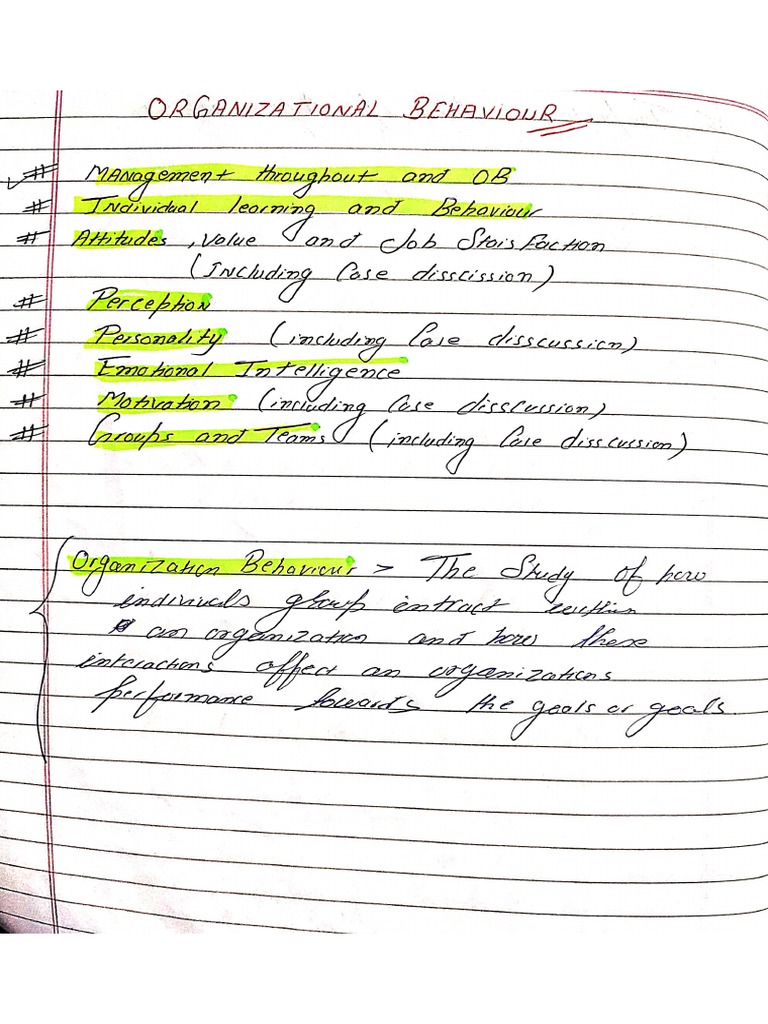 ORGANIZATIONAL BEHAVIOUR
# MANagement throughout and OB
# INdividual learning and Behaviour
# Attitudes, value and Job StaisFaction
(INcluding Case disscission)
# Perception
# Personality (including Case disscussion)
# Emotional Intelligence
# Motivation (including Case disscussion)
# Groups and Teams (including Case disscussion)
Organization Behaviour > The Study of how
indiviuals group entract within
an organization and how these
interactions affect an organizations
performance towards the goals or goals.